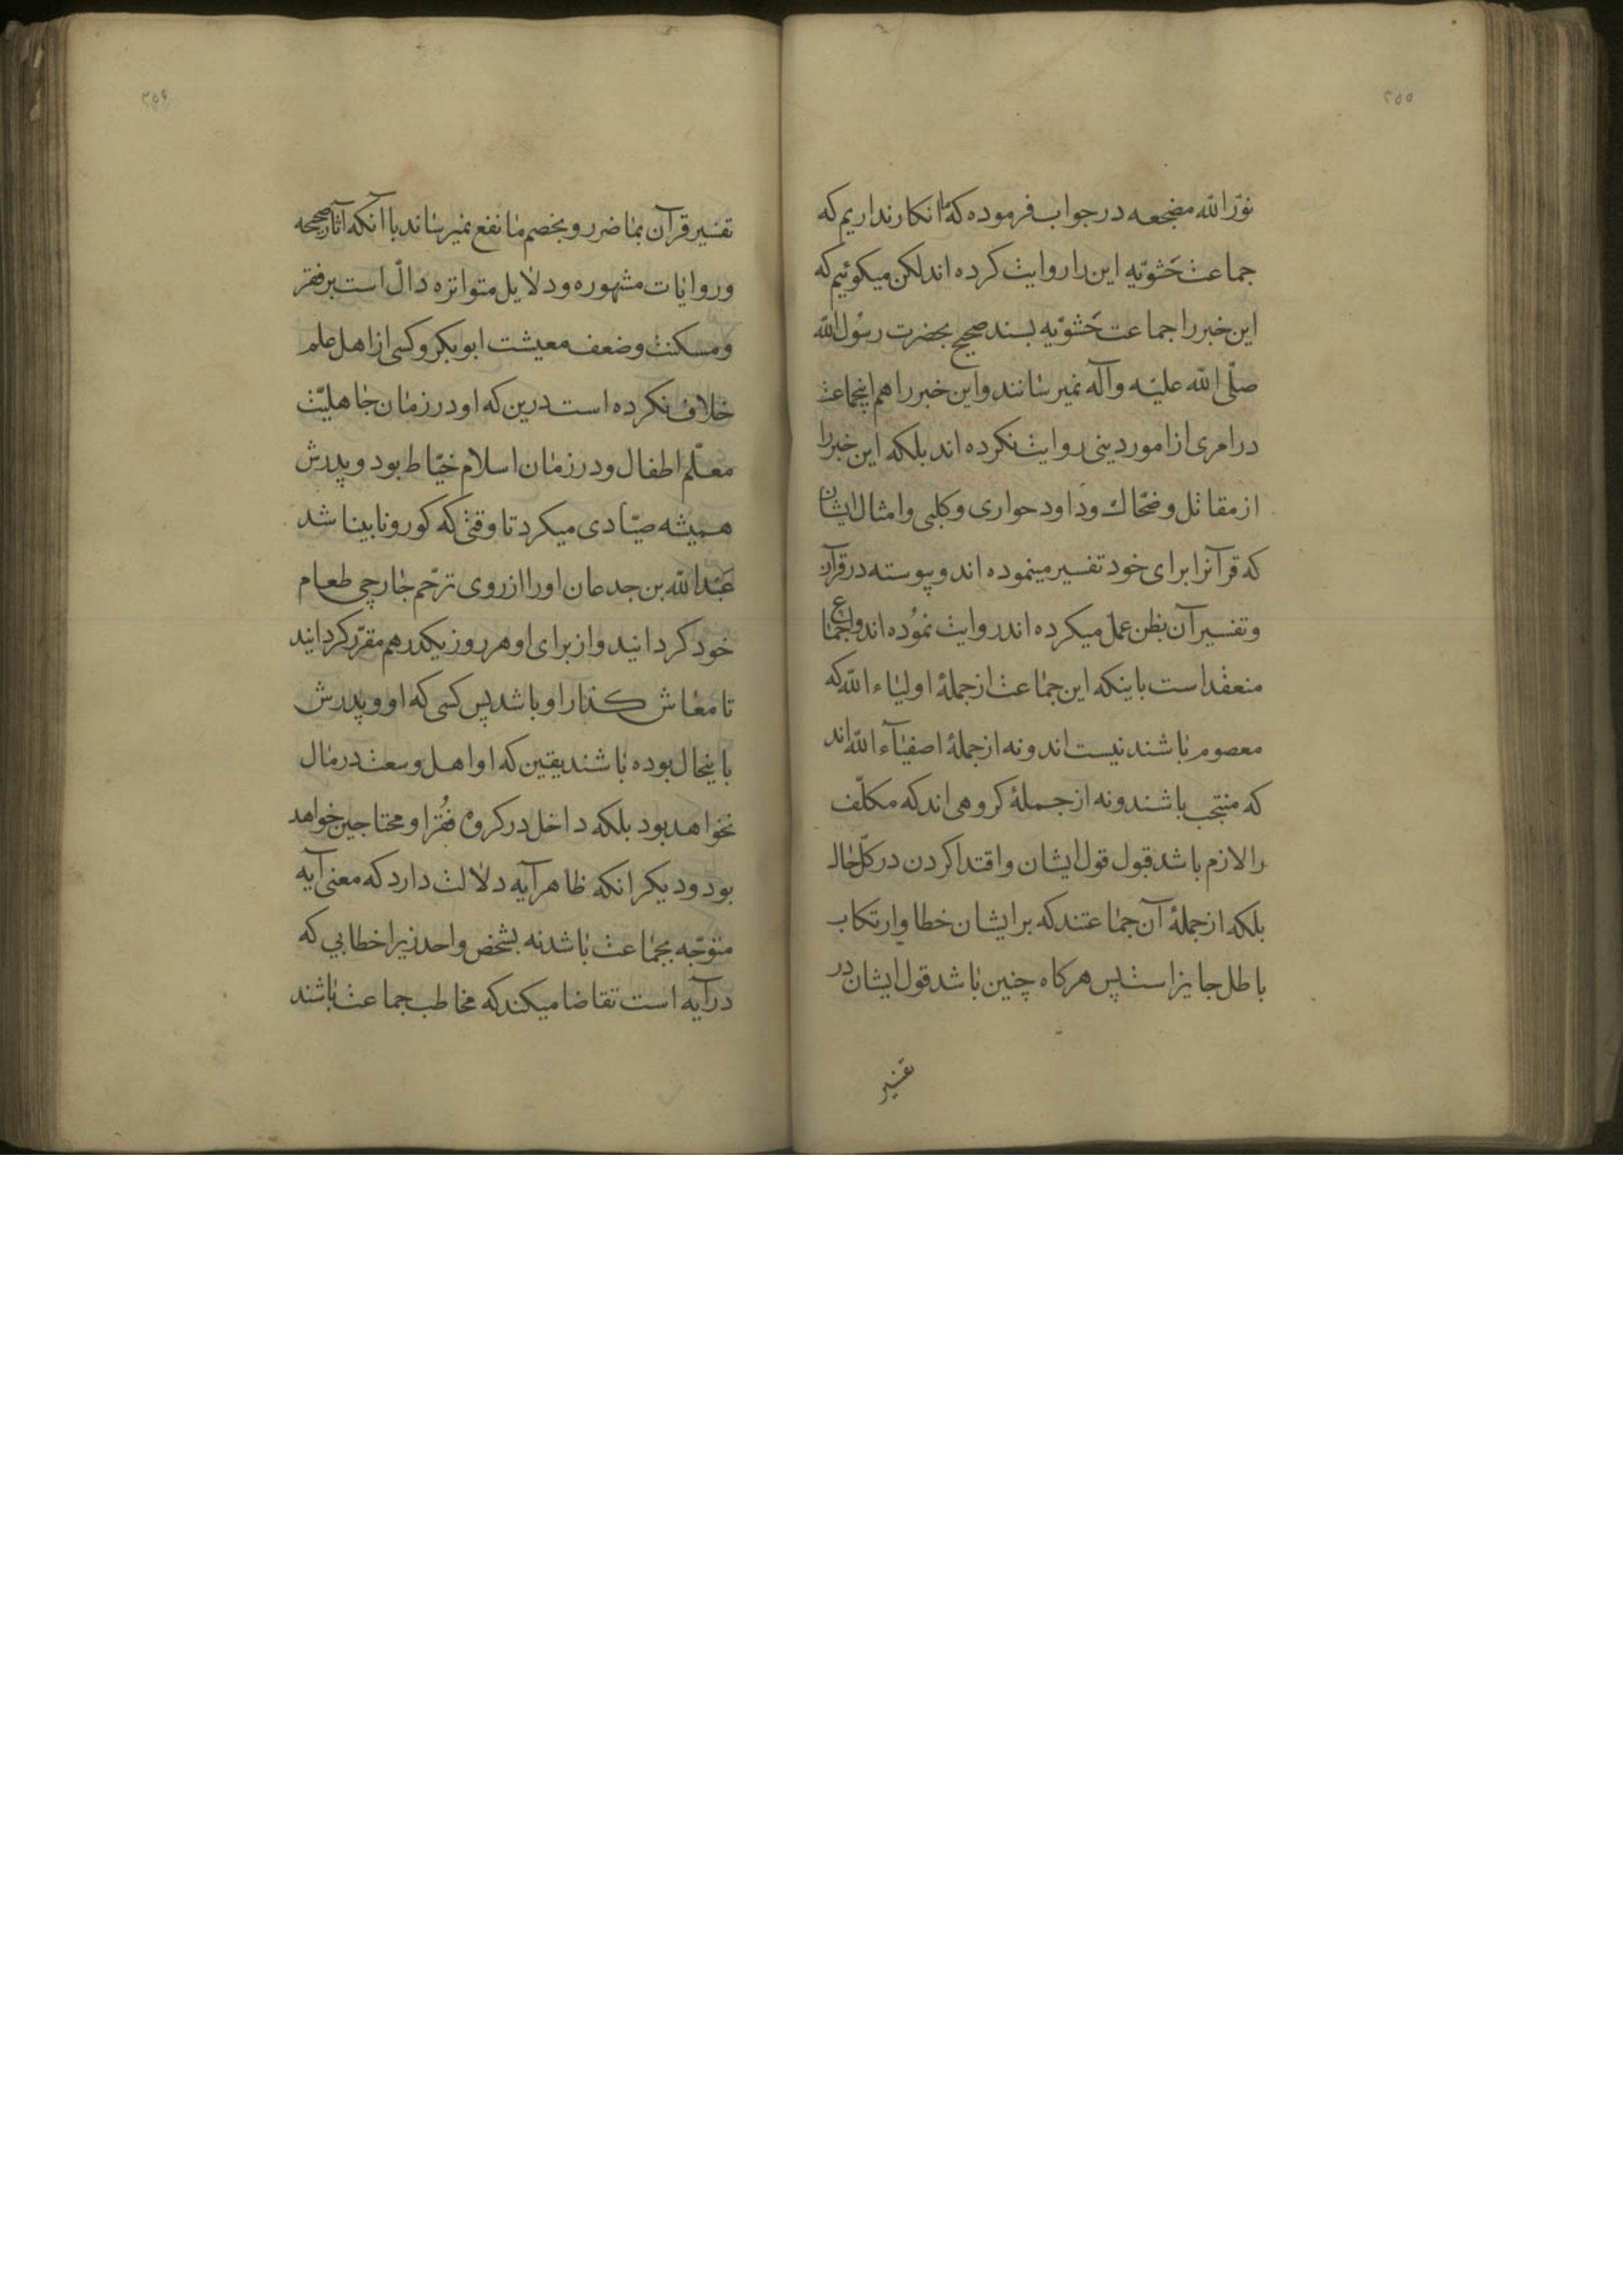 ۲۵۵
نوّر الله مضجعه در جواب فرموده که ما انکار نداریم که
جماعت حَشَویّه این را روایت کرده اند لکن میکوئیم که
این خبر را جماعت حَشَویّه بسند صحیح بحضرت رسُول الله
صلّی الله علیه وآله نمیرسانند واین خبر را هم اینجماعت
در امری از امور دینی روایت نکرده اند بلکه این خبر را
از مقاتل وضحّاک وداود حواری وکلبی وامثال ایشان
که قرآنرا برای خود تفسیر مینموده اند وپیوسته در قرآن
وتفسیر آن بظن عمل میکرده اند روایت نموُده اند واجماع
منعقد است باینکه این جماعت از جملهٔ اولیاء الله که
معصوم باشند نیست اند ونه از جملهٔ اصفیآء الله اند
که منتجب باشند ونه از جملهٔ کروهی اند که مکلّف
را لازم باشد قبول قول ایشان واقتدا کردن در کلّ حال
بلکه از جملهٔ آن جماعتند که بر ایشان خطا وارتکاب
باطل جایز است پس هرکاه چنین باشد قول ایشان در
تفسیر
۲۵۶
تفسیر قرآن بما ضرر وبخصم ما نفع نمیرساند با آنکه آثار صحیحه
وروایات مشهوره ودلایل متواتره دالّ است بر فقر
ومسکنت وضعف معیشت ابو بکر وکسی از اهل علم
خلاف نکرده است درین که او در زمان جاهلیّت
معلّم اطفال ودر زمان اسلام خیّاط بود وپدرش
همیشه صیّادی میکرد تا وقتی که کور ونابینا شد
عَبد الله بن جدعان او را از روی ترحّم جارچی طعام
خود کردانید واز برای او هر روز یکدرهم مقرّر کردانید
تا معاش کذار او باشد پس کسی که او وپدرش
باینحال بوده باشند یقین که او اهل وسعت در مال
نخواهد بود بلکه داخل در کروه فُقرا ومحتاجین خواهد
بود ودیکر انکه ظاهر آیه دلالت دارد که معنی آیه
متوجّه بجماعت باشد نه بشخص واحد زیرا خطابی که
در آیه است تقاضا میکند که مخاطب جماعت باشند